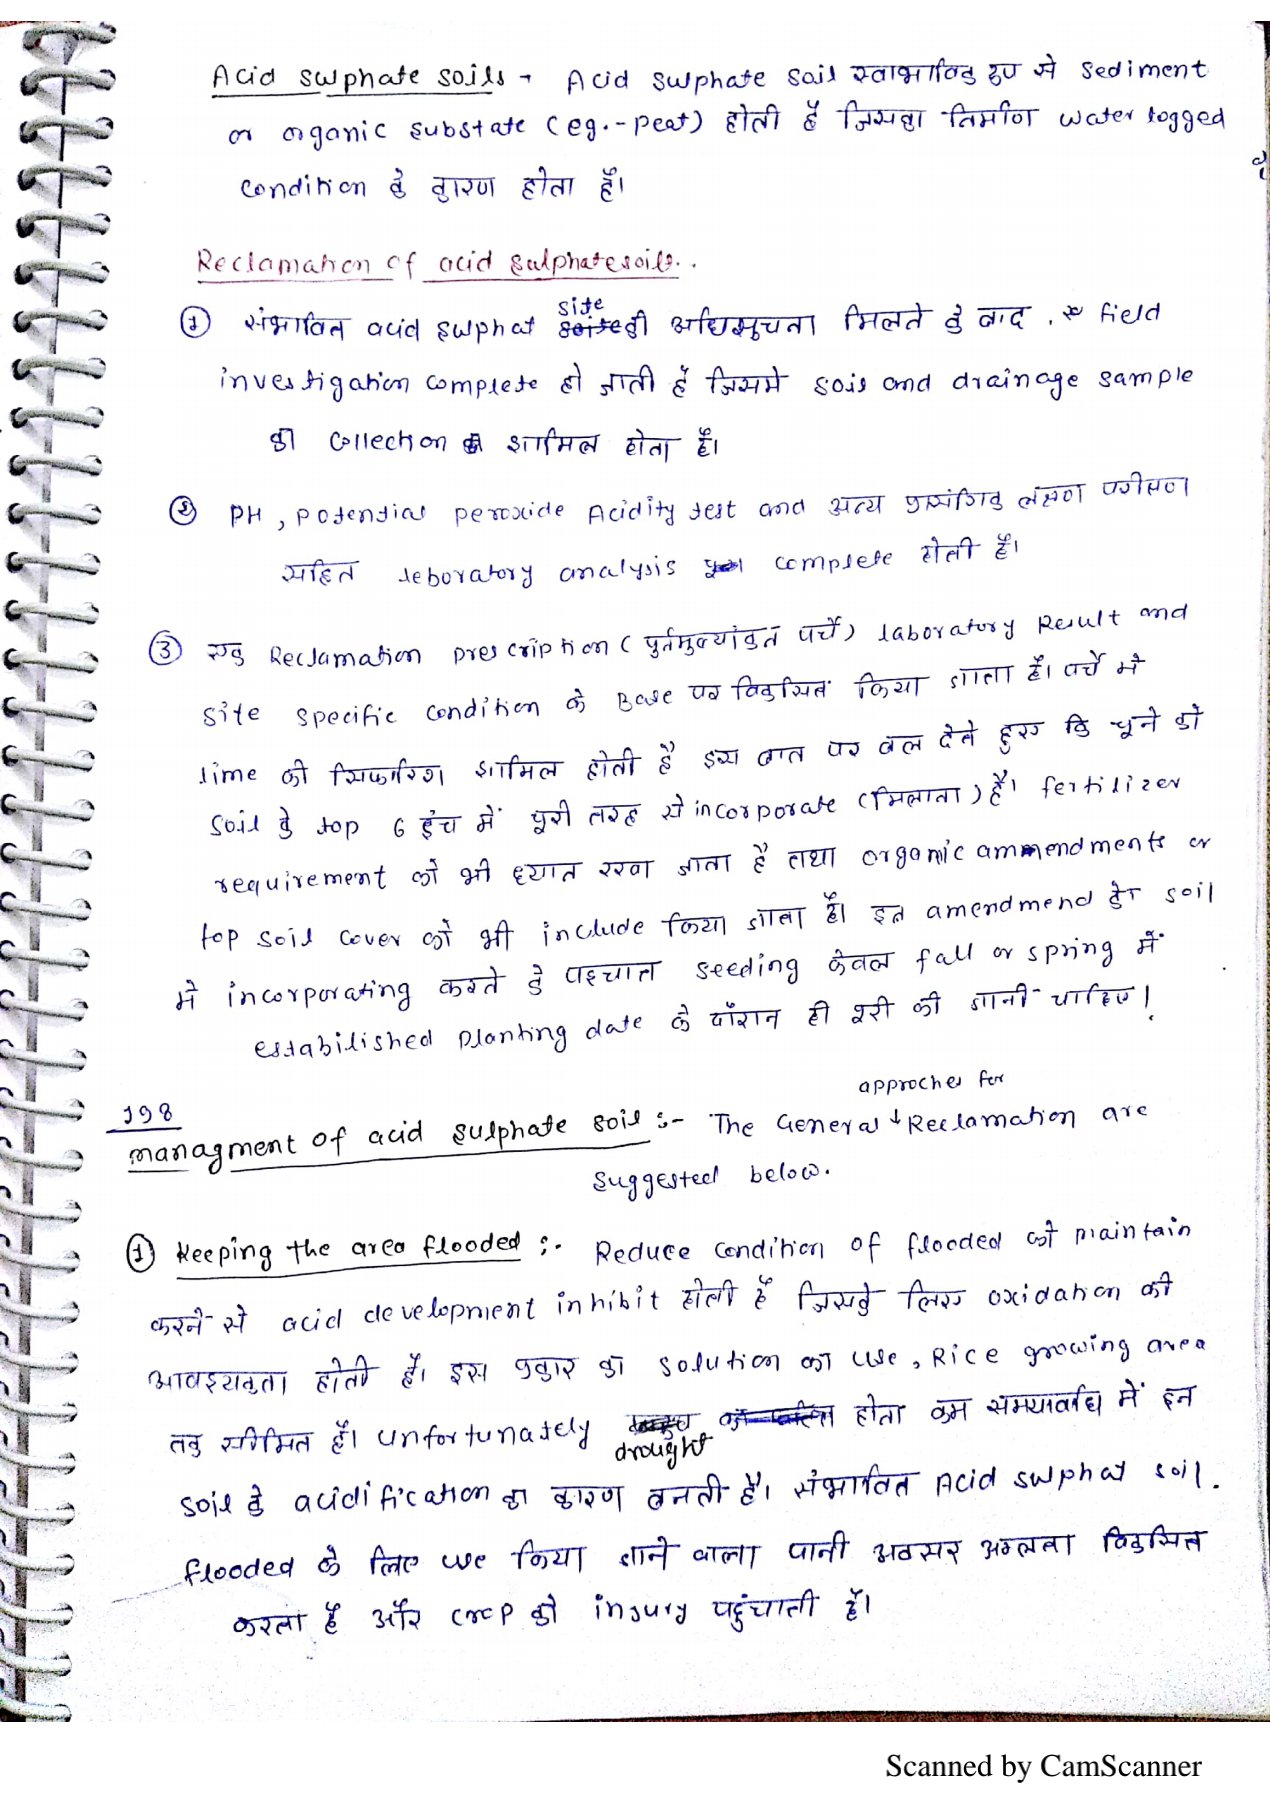 Acid swphate soils → Acid swphate soil स्वाभाविक रूप से sediment
or organic substate (eg.-peat) होती हैं जिसका निर्माण water logged
condition के कारण होता हैं।
Reclamation of acid sulphate soils..
① संभावित acid swphat site की अधिसूचना मिलने के बाद, field
investigation complete हो जाती हैं जिसमे soil and drainage sample
का collection शामिल होता हैं।
② PH, potential peroxide Acidity test and अन्य प्रासंगिक लक्षण परीक्षण
सहित leboratory analysis complete होती हैं।
③ एक Reclamation prescription (पुर्तमुल्यांकन पर्चे) laboratory Result and
site specific condition के Base पर विकसित किया जाता हैं। पर्चे में
lime की सिफारिश शामिल होती है इस बात पर बल देते हुए कि चूने को
soil के top 6 इंच में पूरी तरह से incorporate (मिलाना) हैं। fertilizer
requirement को भी ध्यान रखा जाता है तथा organic ammendments or
top soil cover को भी include किया जाता हैं। इन amendmend को soil
में incorporating करने के पश्चात seeding केवल fall or spring में
estabilished planting date के दौरान ही पूरी की जानी चाहिए!
198
approches for
managment of acid sulphate soil :- The General ↓ Reclamation are
suggested below.
① Keeping the area flooded :- Reduce condition of flooded को maintain
करने से acid development inhibit होती हैं जिसके लिए oxidation की
आवश्यकता होती हैं। इस प्रकार का solution का use, Rice growing area
तक सीमित हैं। unfortunately drought होता कम समयावधि में इन
soil के acidification का कारण बनती हैं। संभावित Acid swphat soil.
flooded के लिए use किया जाने वाला पानी अक्सर अम्लता विकसित
करता हैं और crop को injury पहुंचाती हैं।
Scanned by CamScanner